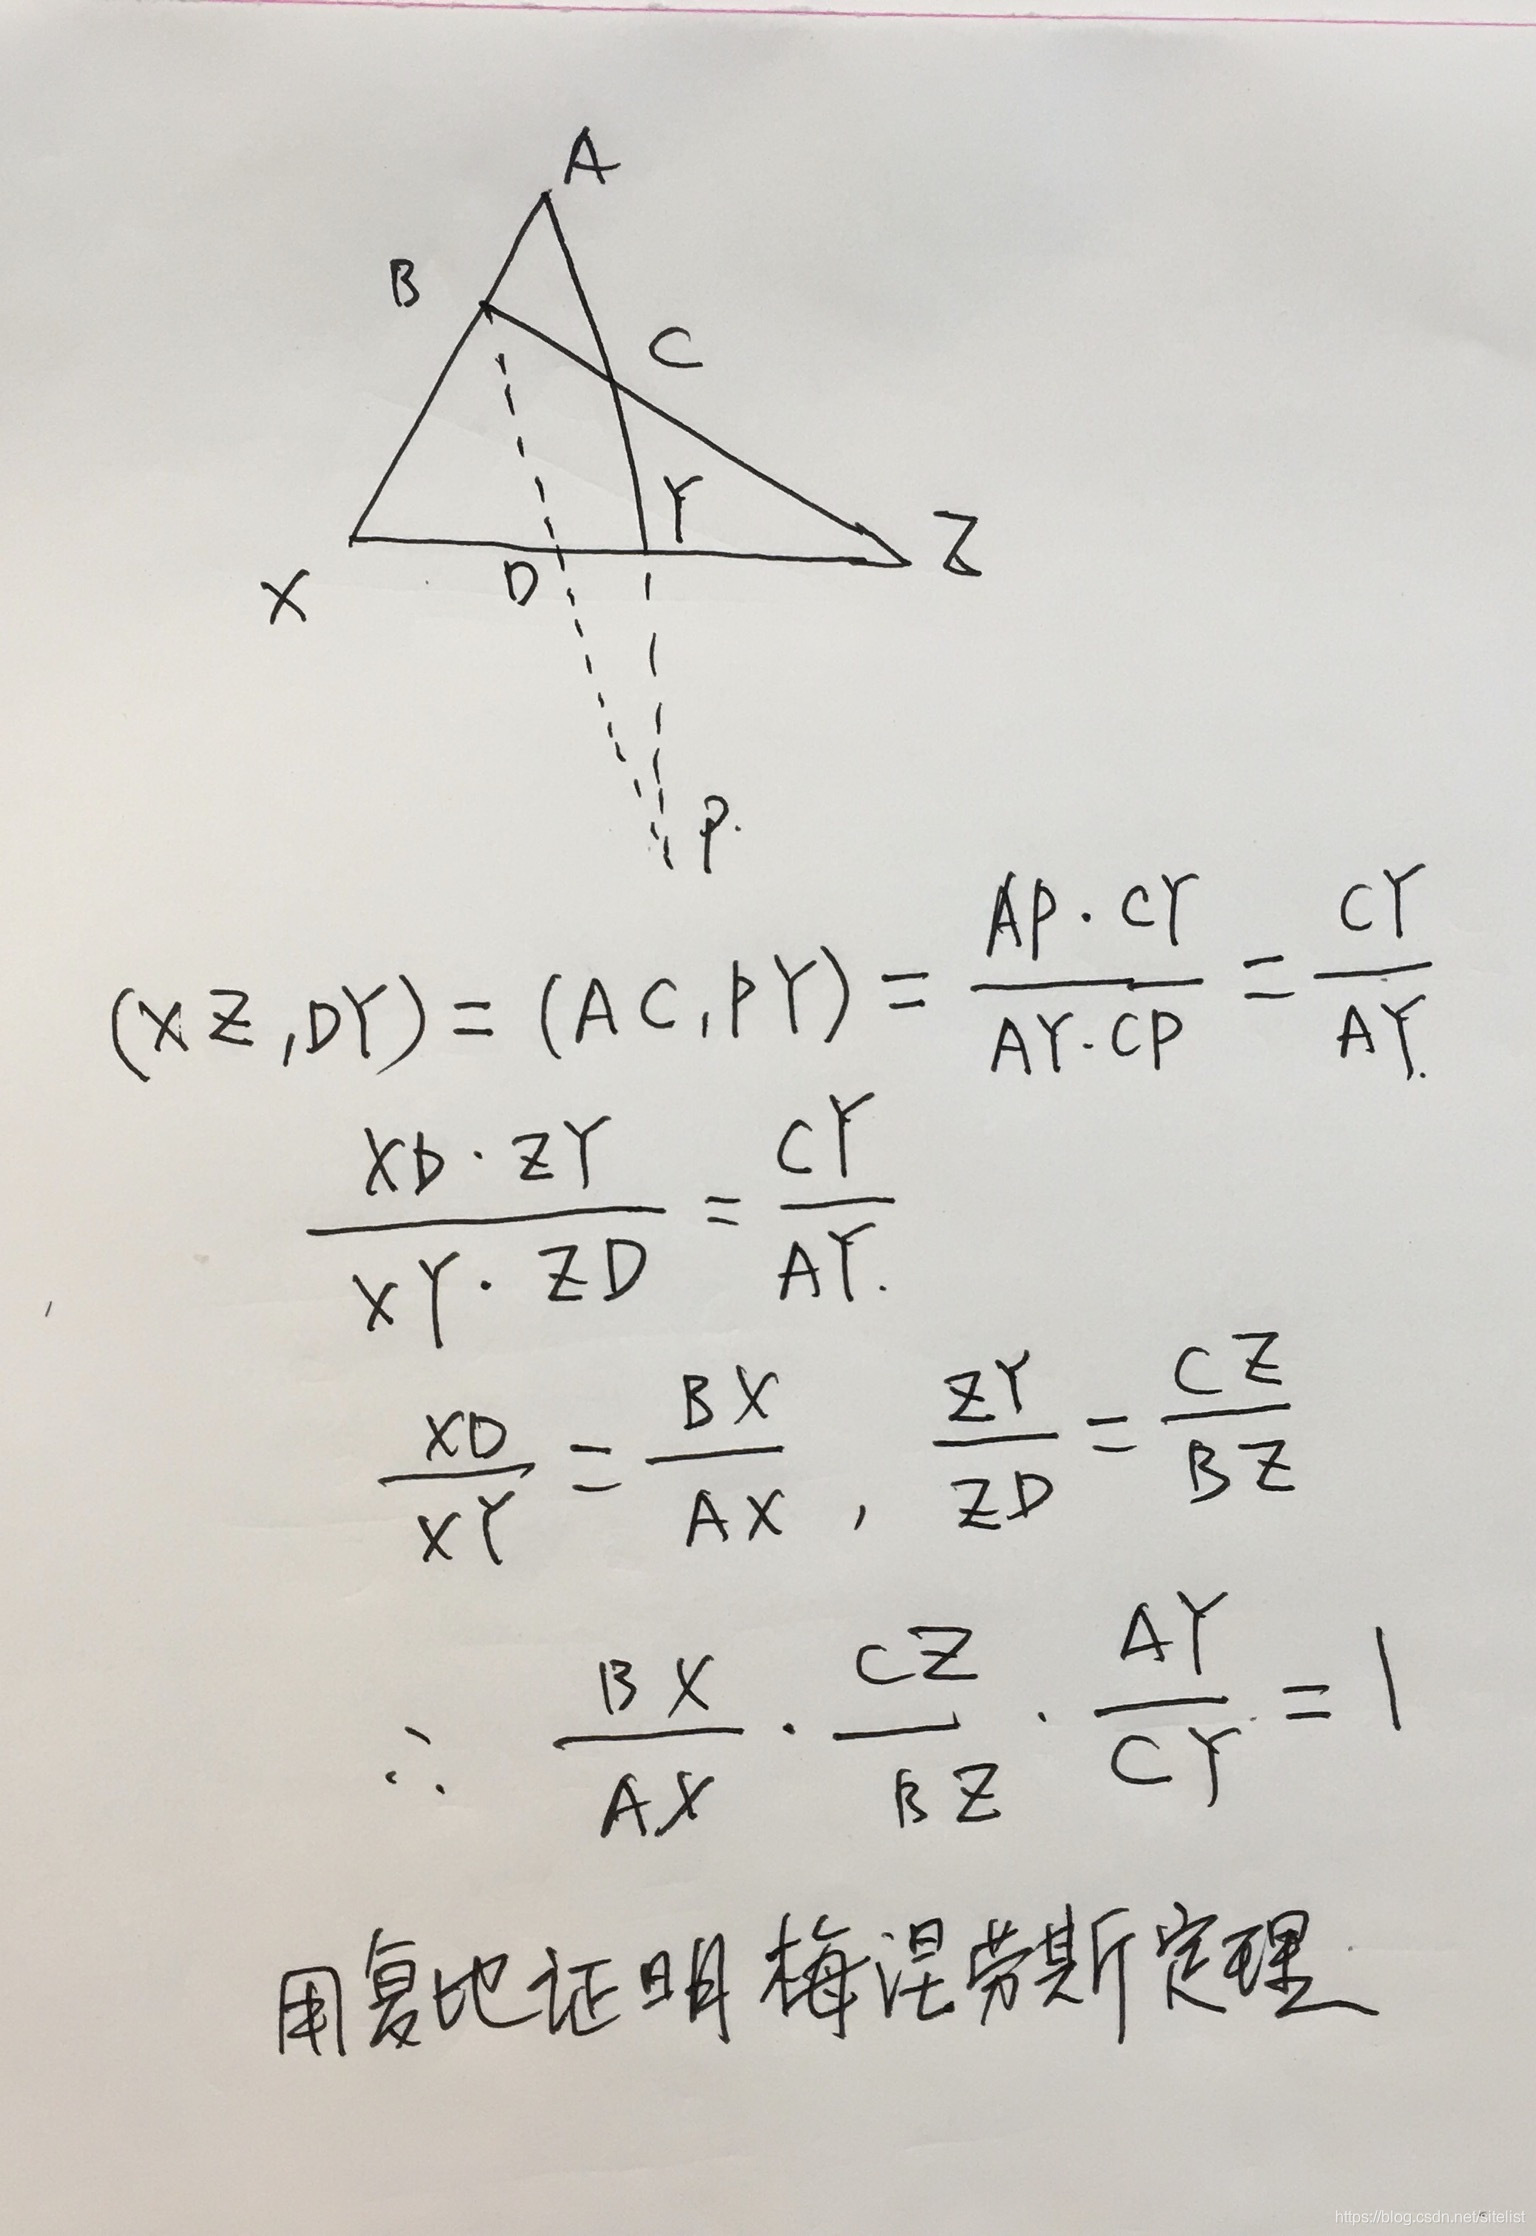 A
B
C
Y
Z
X
D
P.
(XZ,DY) = (AC,PY) = AP·CY / AY·CP = CY / AY.
XD·ZY / XY·ZD = CY / AY.
XD / XY = BX / AX , ZY / ZD = CZ / BZ
∴ BX / AX · CZ / BZ · AY / CY = 1
用复地证明梅涅劳斯定理
https://blog.csdn.net/sitelist